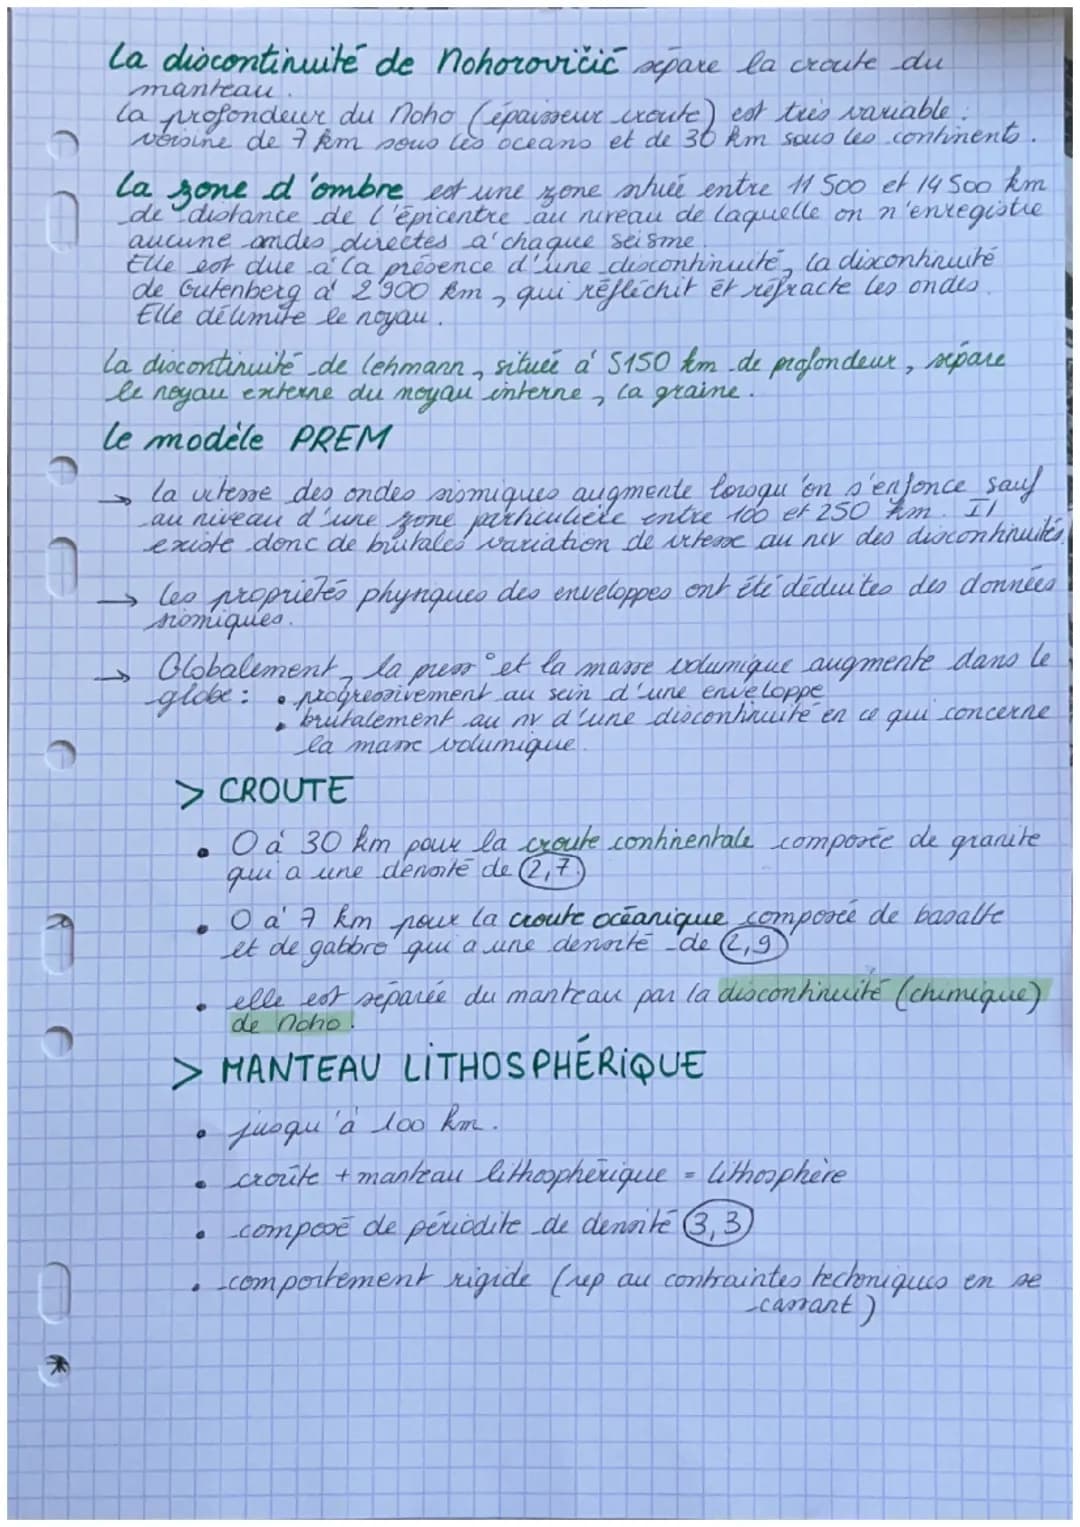 La discontinuité de Mohorovičić sépare la croute du
manteau.
La profondeur du Moho (épaisseur croute) est très variable :
voisine de 7 km sous les océans et de 30 km sous les continents.
La zone d'ombre est une zone située entre 11 500 et 14 500 km
de distance de l'épicentre au niveau de laquelle on n'enregistre
aucune ondes directes à chaque seisme.
Elle est due à la présence d'une discontinuité, la discontinuité
de Gutenberg à 2900 km, qui réfléchit et réfracte les ondes.
Elle délimite le noyau.
La discontinuité de Lehmann, située à 5150 km de profondeur, sépare
le noyau externe du noyau interne, la graine.
Le modèle PREM
→ la vitesse des ondes sismiques augmente lorsqu'on s'enfonce sauf
au niveau d'une zone particulière entre 100 et 250 km. Il
existe donc de brutales variation de vitesse au niv des discontinuités.
→ les propriétés physiques des enveloppes ont été déduites des données
sismiques.
→ Globalement, la press° et la masse volumique augmente dans le
globe : • progressivement au sein d'une enveloppe
• brutalement au nv d'une discontinuité en ce qui concerne
la masse volumique.
> CROUTE
• 0 à 30 km pour la croute continentale composée de granite
qui a une densité de 2,7.
• 0 à 7 km pour la croute océanique composée de basalte
et de gabbro qui a une densité de 2,9
• elle est séparée du manteau par la discontinuité (chimique)
de Moho.
> MANTEAU LITHOSPHÉRIQUE
• jusqu'à 100 km.
• croûte + manteau lithosphérique = lithosphère
• composé de péridite de densité 3,3
• comportement rigide (rep au contraintes tectoniques en se
cassant)